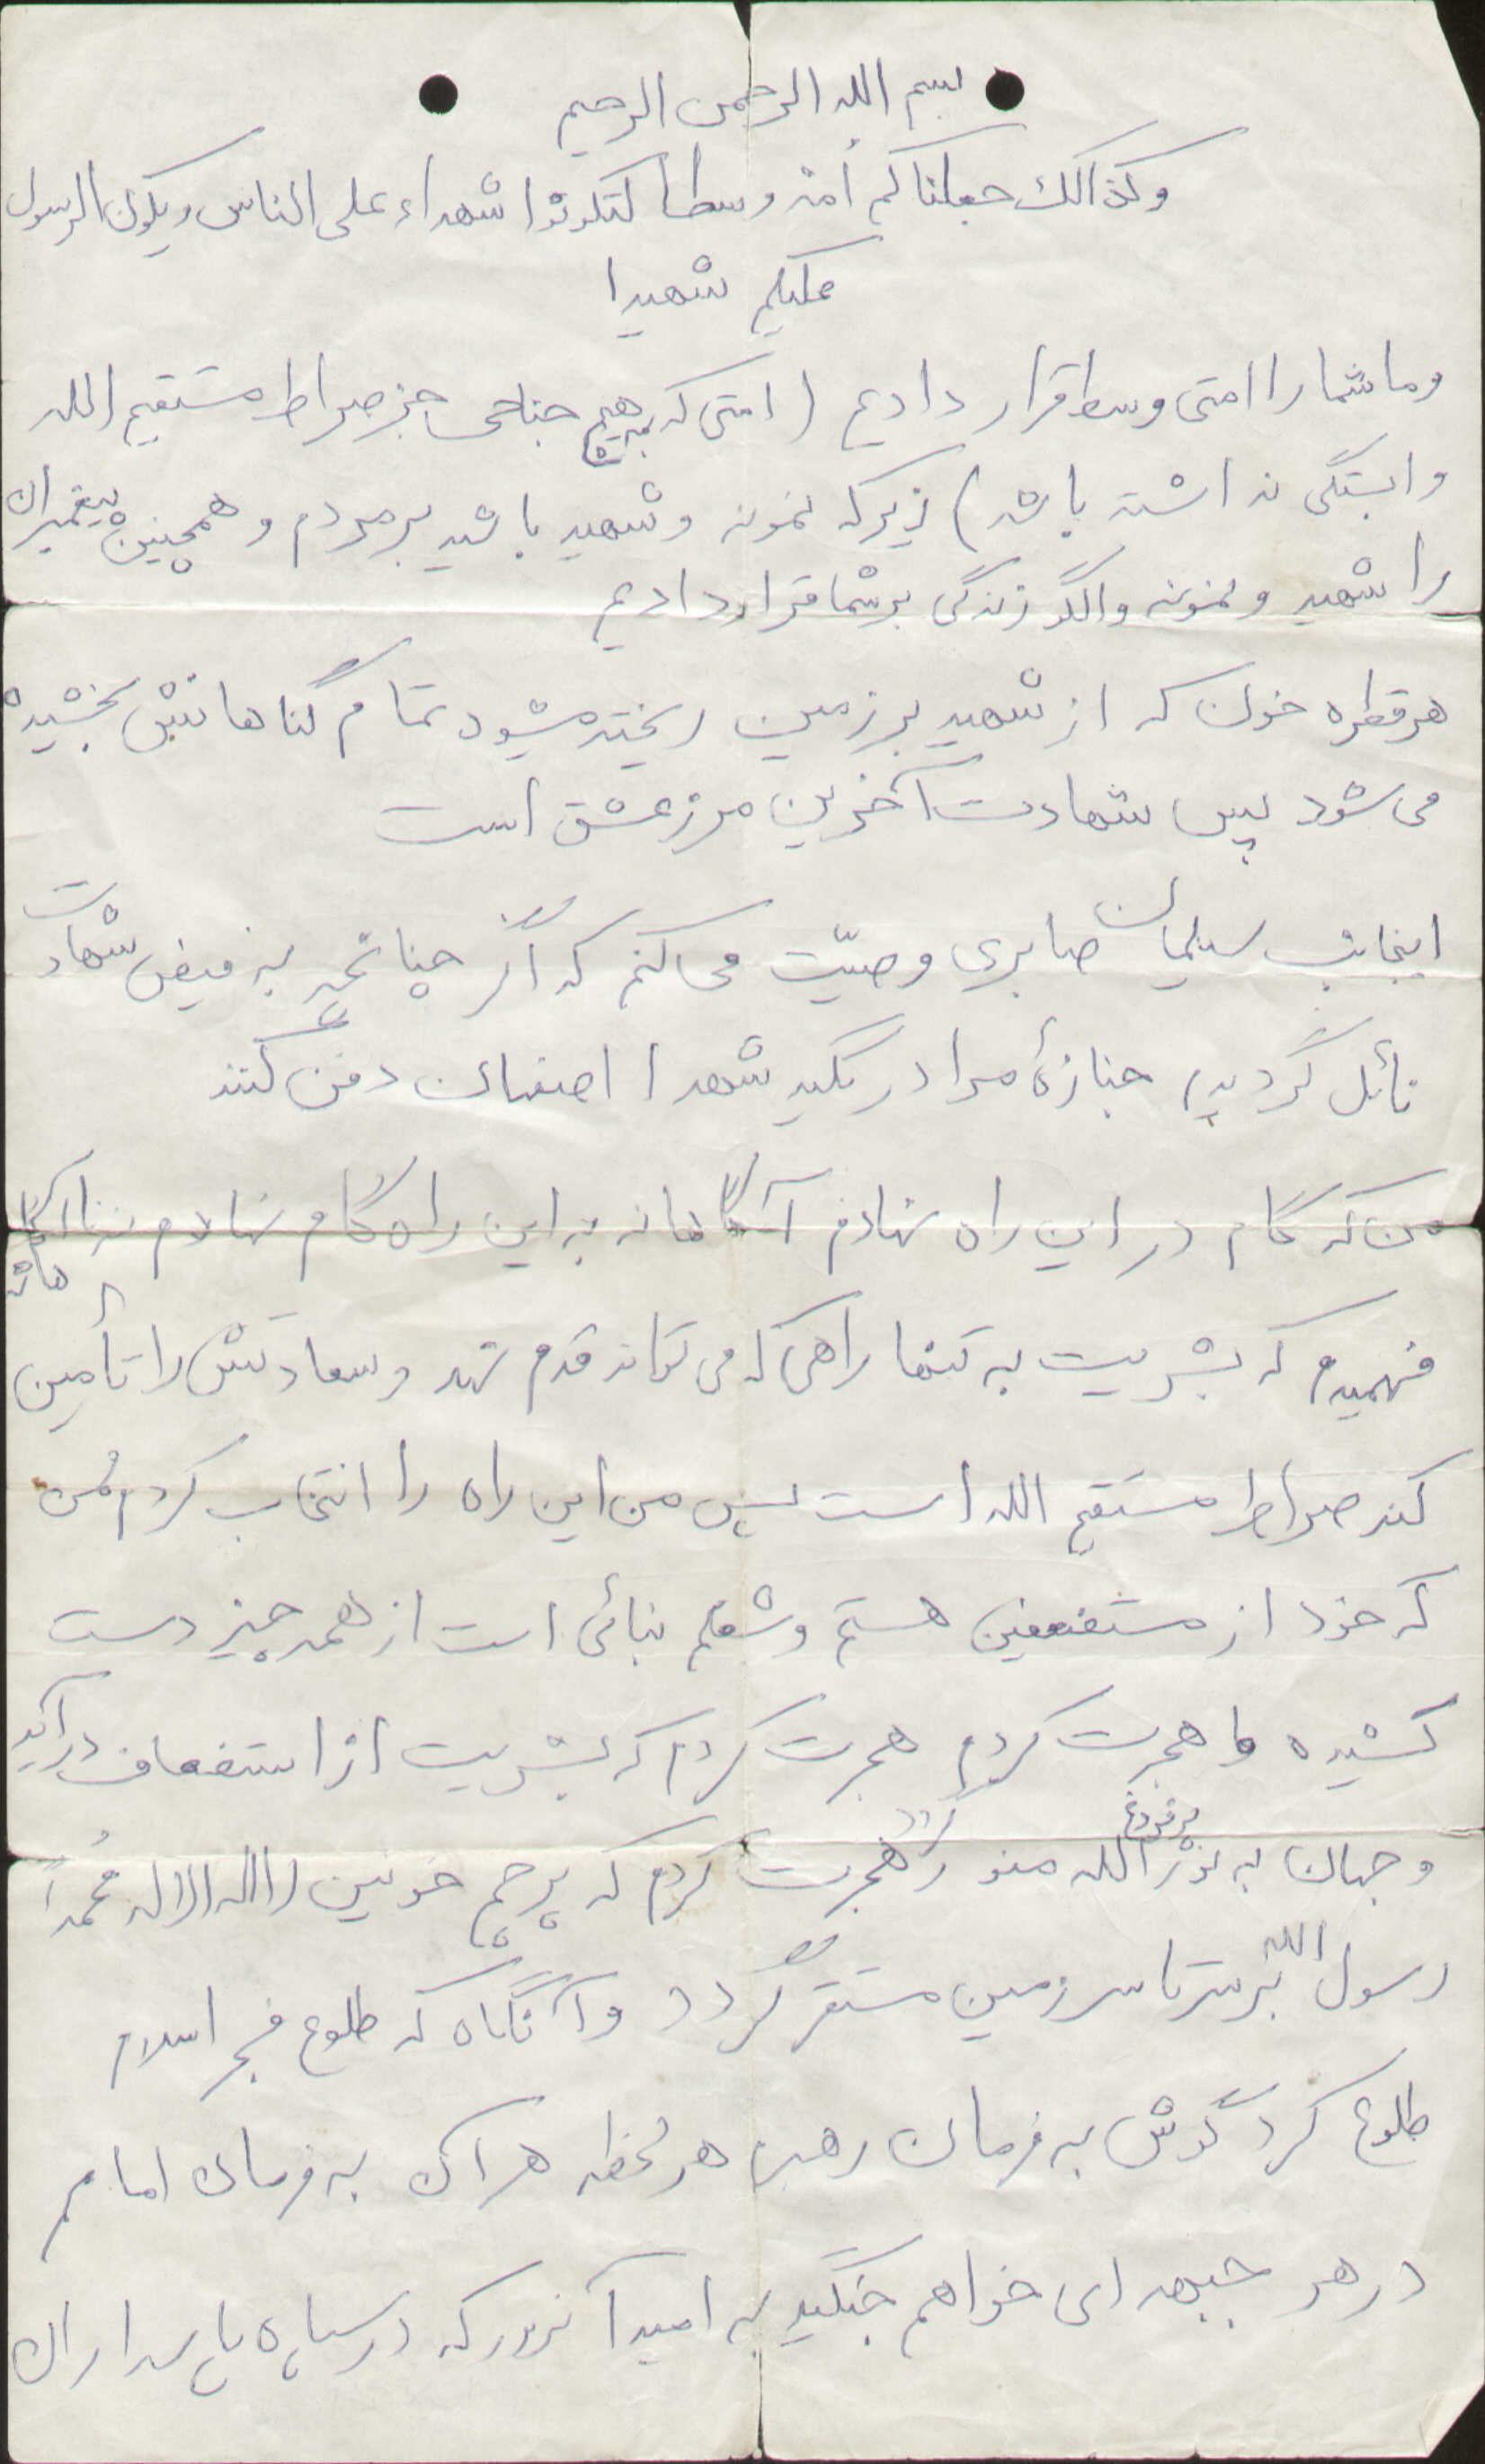 بسم الله الرحمن الرحیم
وکذالک جعلناکم أمة وسطا لتکونوا شهداء علی الناس ویکون الرسول
علیکم شهیدا
وما شما را امتی وسط قرار دادیم (امتی که به هیچ جناحی جز صراط مستقیم الله
وابستگی نداشته باشد) زیرکه نمونه و شهید باشید بر مردم و همچنین پیغمبران
را شهید و نمونه والگو زندگی بر شما قرار دادیم
هر قطره خون که از شهید بر زمین ریخته میشود تمام گناهانش بخشیده
می شود پس شهادت آخرین مرز عشق است
اینجانب سلیمان صابری وصیّت می کنم که اگر چنانچه به فیض شهادت
نائل گردیدم جنازهٔ مرا در تکیه شهدا اصفهان دفن کنند
من که گام در این راه نهادم آگاهانه به این راه گام نهادم نه ناآگاهانه
فهمیدم که بشریت به تنها راهی که می تواند قدم نهد و سعادتش را تأمین
کند صراط مستقیم الله است پس من این راه را انتخاب کردم من
که خود از مستضعفین هستم و شغلم بنائی است از همه چیز دست
کشیده و هجرت کردم هجرت کردم که بشریت از استضعاف درآید
و جهان به نور پرفروغ الله منور گردد هجرت کردم که پرچم خونین لااله الا الله محمداً
رسول الله بر سرتاسر زمین مستقر گردد و آنگاه که طلوع فجر اسلام
طلوع کرد گوش به فرمان رهبر هر لحظه هر آن به فرمان امام
در هر جبهه ای خواهم جنگید به امید آنروز که در سپاه پاسداران